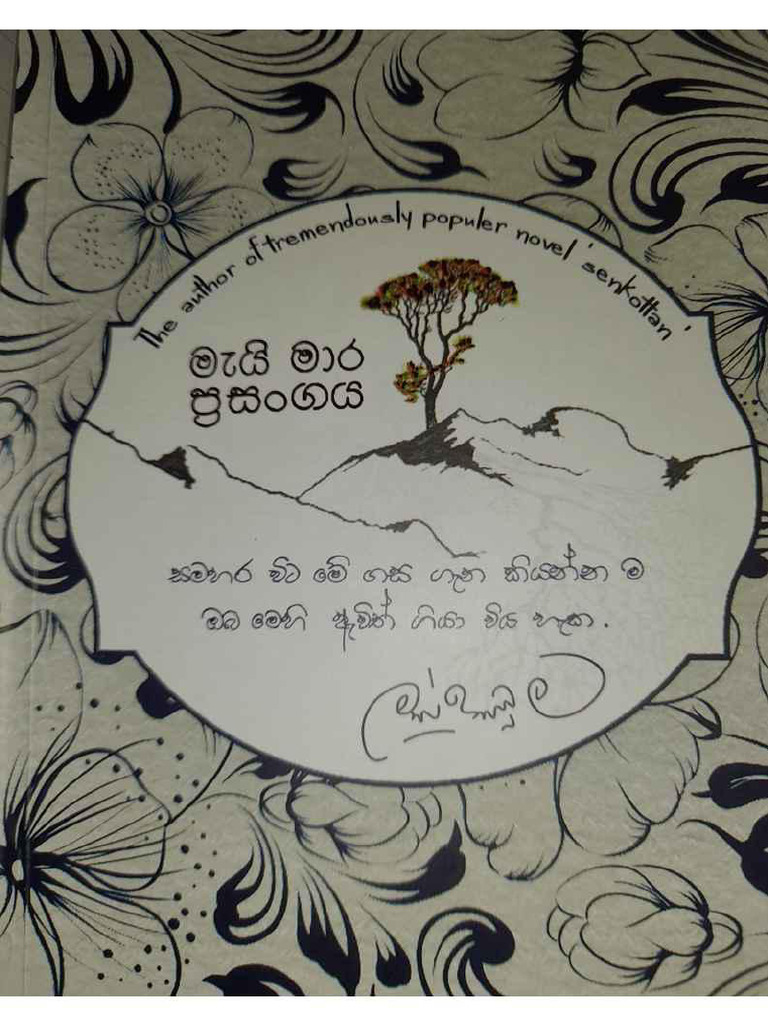 The author of tremendously populer novel 'senkottan'
මැයි මාර
ප්‍රසංගය
සමහර විට මේ ගස ගැන කියන්න ම
ඔබ මෙහි ඇවිත් ගියා විය හැක.